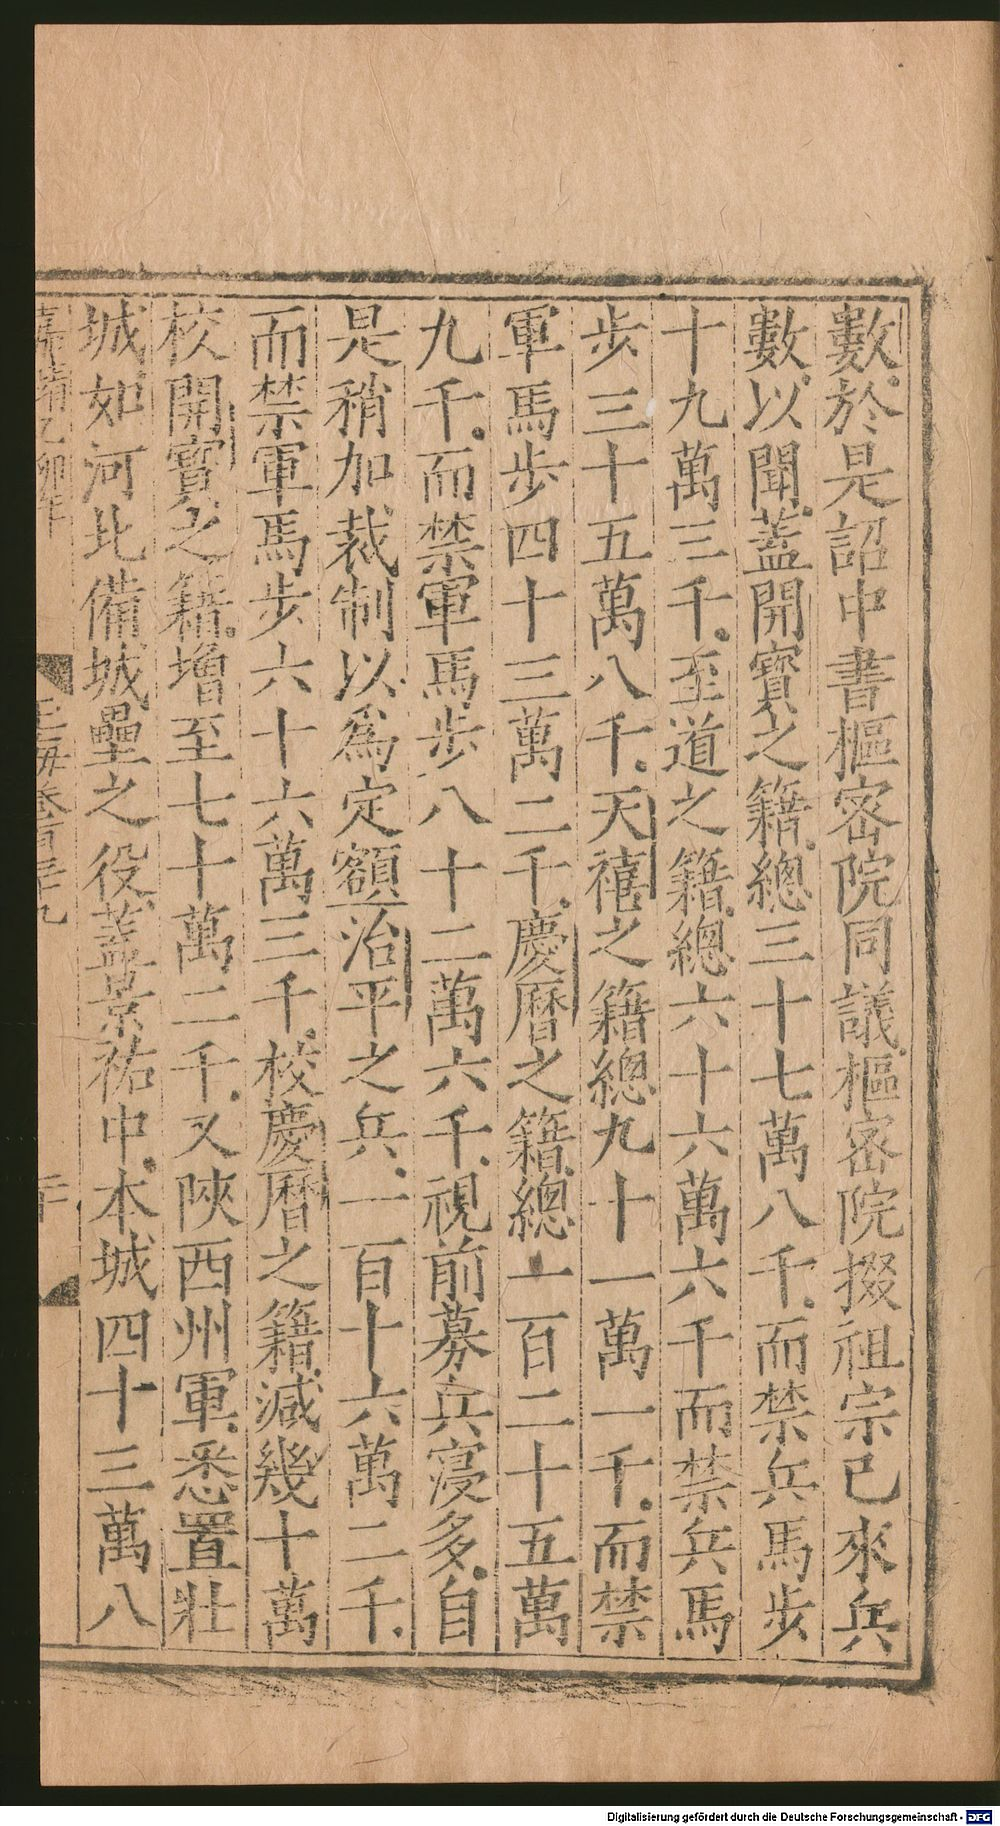 數於是詔中書樞密院同議樞密院掇祖宗已來兵
數以聞蓋開寶之籍總三十七萬八千而禁兵馬步
十九萬三千至道之籍總六十六萬六千而禁兵馬
步三十五萬八千天禧之籍總九十一萬一千而禁
軍馬步四十三萬二千慶曆之籍總一百二十五萬
九千而禁軍馬步八十二萬六千視前募兵寖多自
是稍加裁制以為定額治平之兵一百十六萬二千
而禁軍馬步六十六萬三千校慶曆之籍減幾十萬
校開寶之籍增至七十萬二千又陝西州軍悉置壯
城如河北備城壘之役蓋景祐中本城四十三萬八
嘉靖乙卯年
玉海卷百三十九
二十
Digitalisierung gefördert durch die Deutsche Forschungsgemeinschaft - DFG